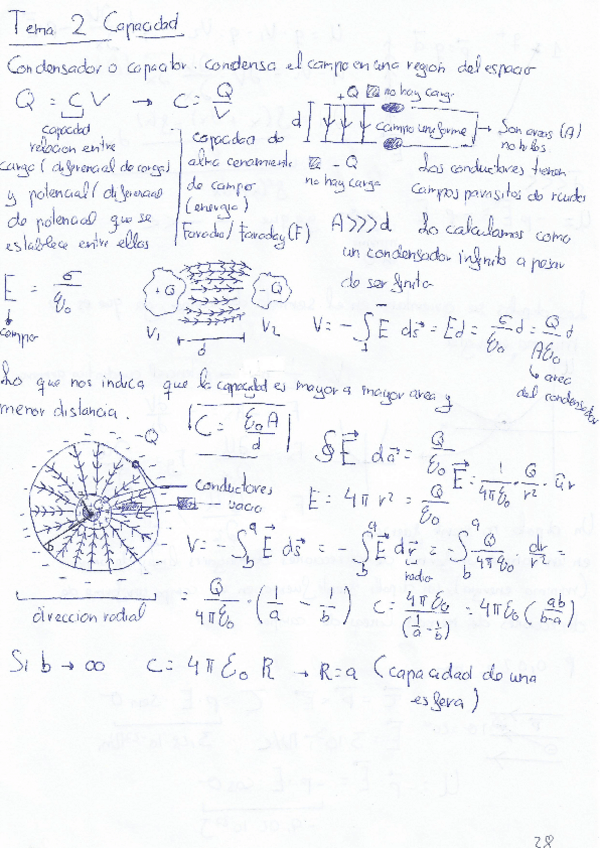 Tema 2 Capacidad
Condensador o capacitor. condensa el campo en una region del espacio
Q = C V → C = Q/V
capacidad
relacion entre
carga (diferencial de cargas)
y potencial (diferencial
de potencial que se
establece entre ellas
capacidad de
almacenamiento
de campo
(energia)
Faradio/Faraday (F)
+Q no hay carga
d
campo uniforme → Son areas (A)
-Q
no hay carga
Los conductores tienen
campos parasitos de
A>>>d Lo calculamos como
un condensador infinito a pesar
de ser finito
E = σ/ε₀
campo
+Q -Q
V₁ V₂
d
V = - ∫ E⃗ ds⃗ = Ed = σ/ε₀ d = Q/Aε₀ d
area
del condensador
Lo que nos indica que la capacidad es mayor a mayor area y
menor distancia.
C = ε₀A/d
∮ E⃗ da⃗ = Q/ε₀
E⃗ = 1/4πε₀ · Q/r² · ûr
-Q
conductores
vacio
E = 4πr² = Q/ε₀
V = - ∫ₐᵇ E⃗ ds⃗ = - ∫ₐᵇ E⃗ dr⃗ = - ∫ₐᵇ Q/4πε₀ · dr/r² =
radio
direccion radial
= Q/4πε₀ · (1/a - 1/b) C = 4πε₀/(1/a - 1/b) = 4πε₀ (ab/b-a)
Si b → ∞ C = 4πε₀ R → R=a (capacidad de una
esfera)
28